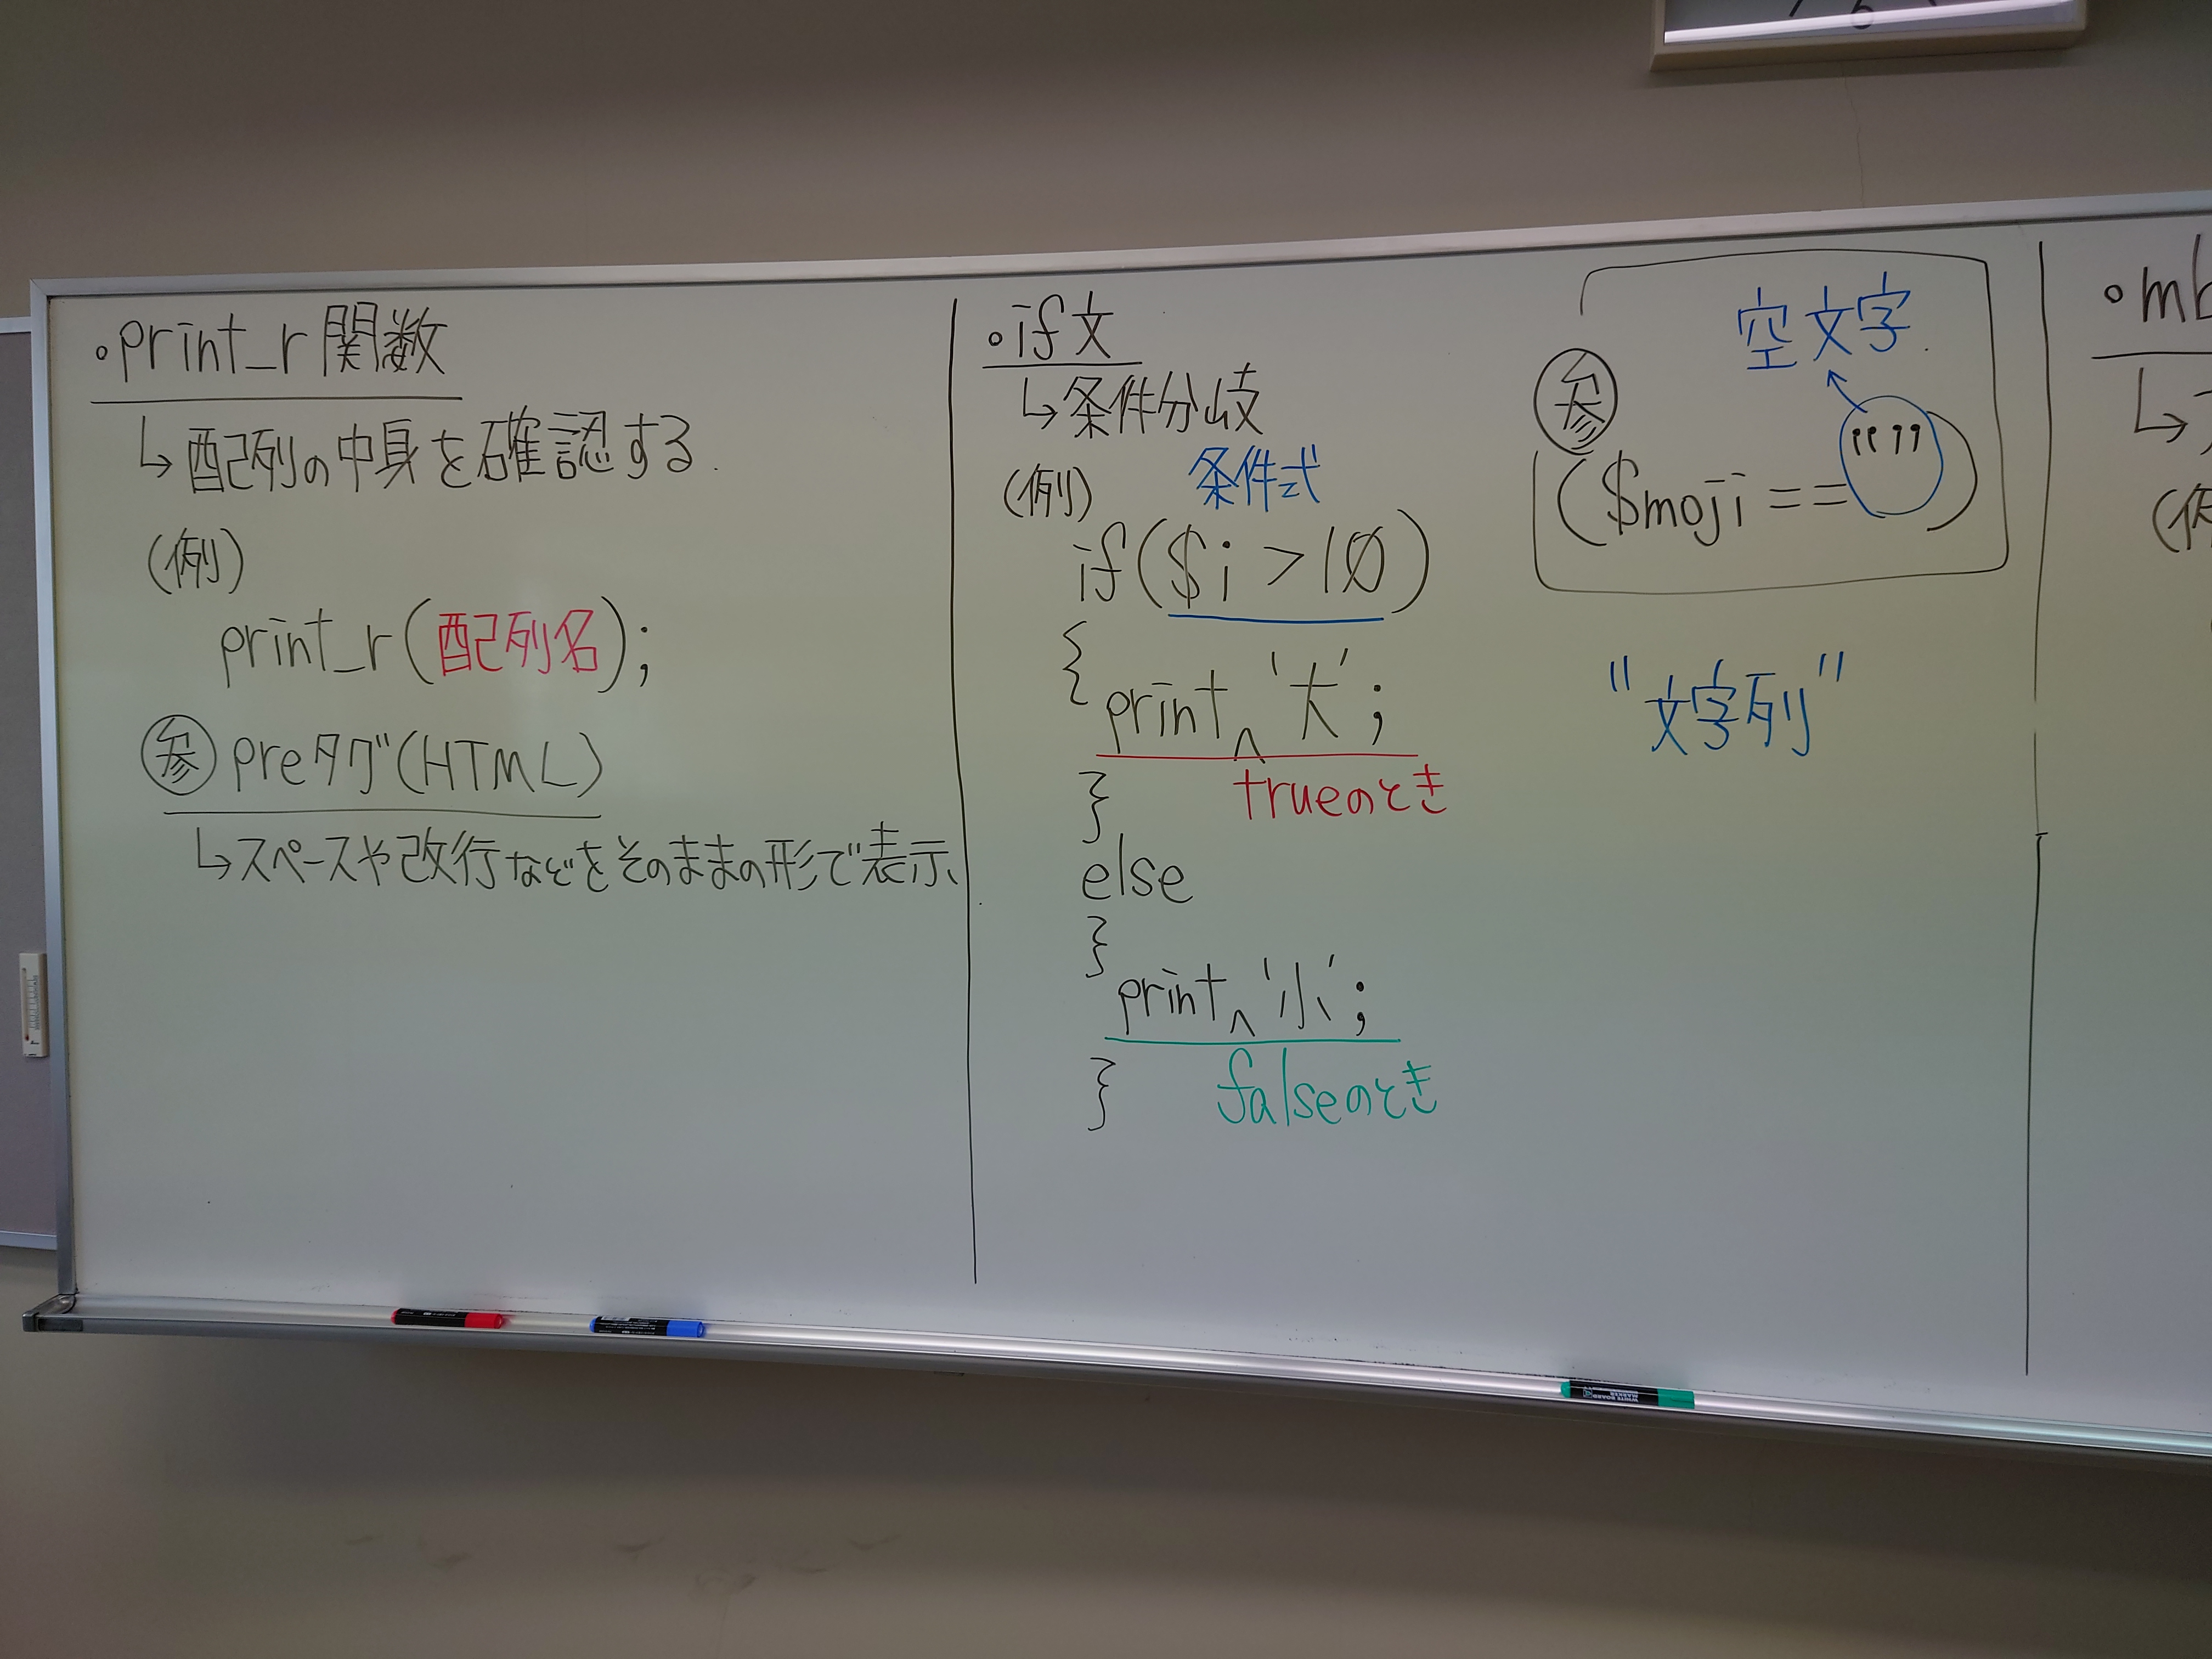 ・print_r関数
↳配列の中身を確認する.
(例)
print_r(配列名);
参 preタグ(HTML)
↳スペースや改行などをそのままの形で表示、
・if文
↳条件分岐
(例) 条件式
if($i>10)
{
print∧'大';
trueのとき
}
else
}
print∧'小';
falseのとき
}
空文字
参
($moji=="")
"文字列"
・mb
↳
(例
WHITE BOARD
MARKER
6